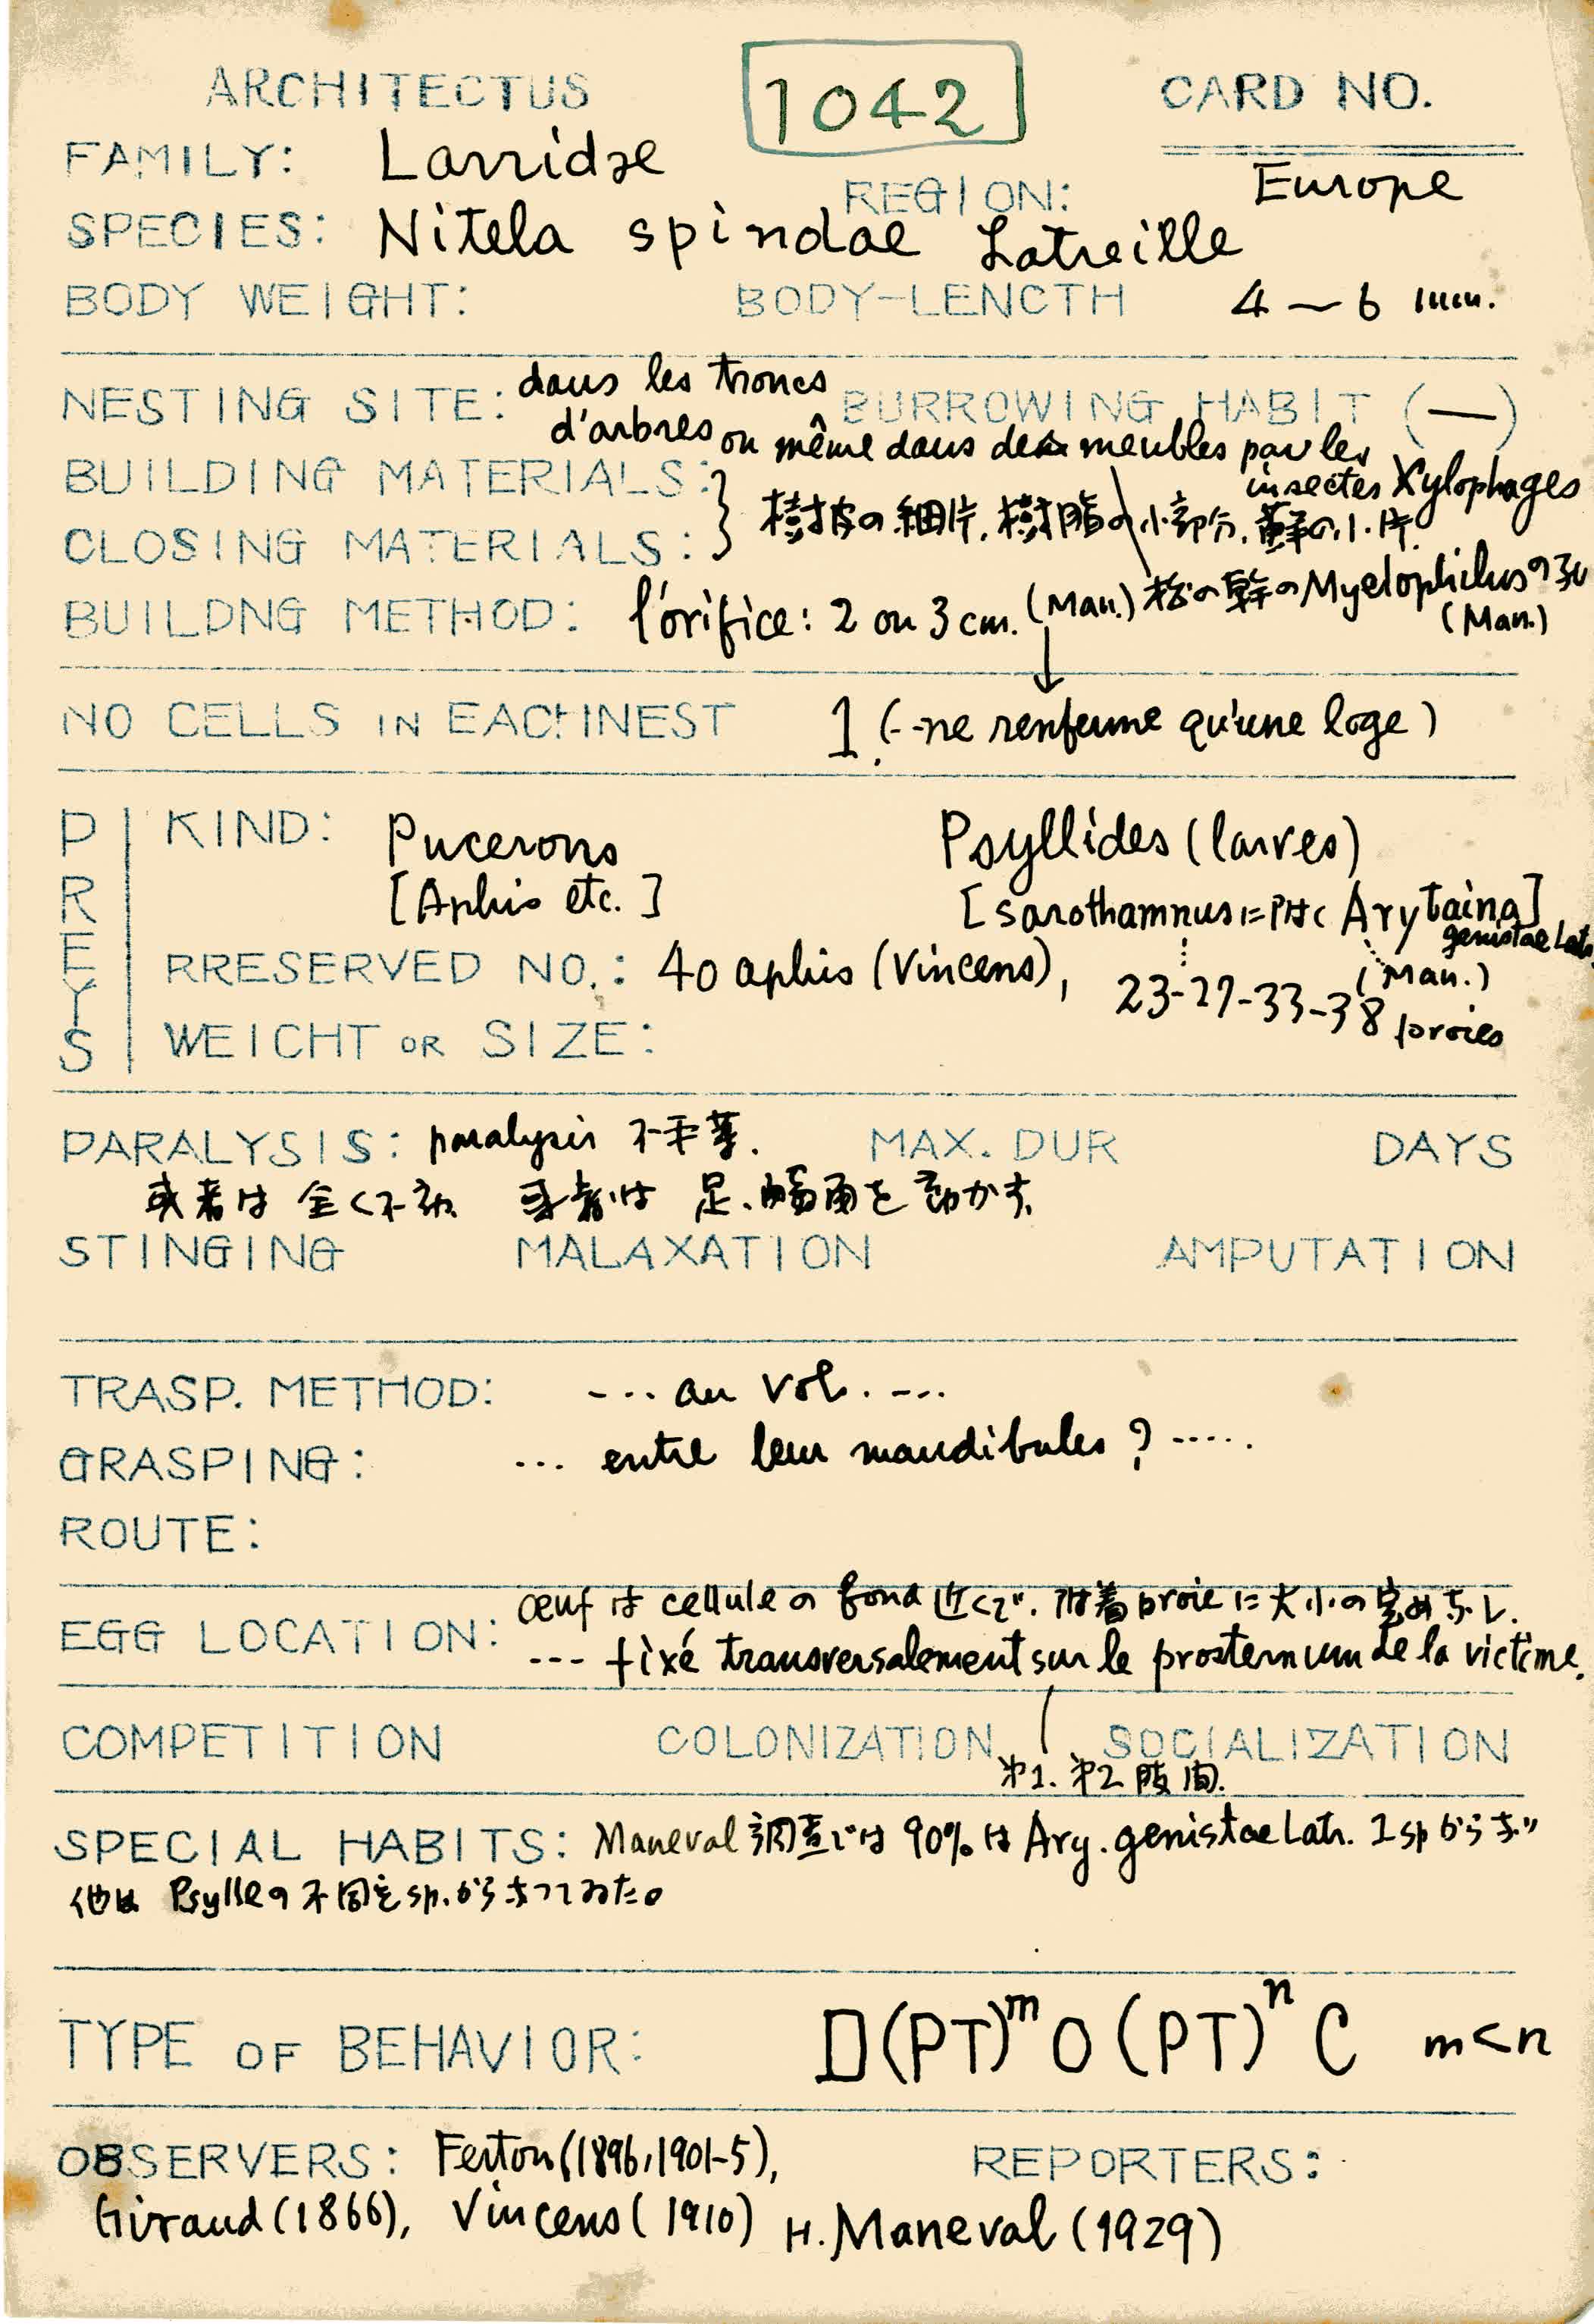 ARCHITECTUS 1042 CARD NO.
FAMILY: Larridae REGION: Europe
SPECIES: Nitela spinolae Latreille
BODY WEIGHT: BODY-LENGTH 4~6 mm.
NESTING SITE: dans les troncs BURROWING HABIT (—)
d'arbres ou même dans des meubles par les
insectes Xylophages
BUILDING MATERIALS:
CLOSING MATERIALS: } 樹皮の細片, 樹脂の小部分, 蘚の小片.
松の幹のMyelophilusの孔
(Man.)
BUILDNG METHOD: l'orifice: 2 ou 3 cm. (Man.)
NO CELLS IN EACH NEST 1 (--ne renferme qu'une loge)
PREYS
KIND: Pucerons Psyllides (larves)
[Aphis etc.] [Sarothamnusに Arytaina]
genistae Latr.
(Man.)
RRESERVED NO.: 40 aphis (Vincens), 23-27-33-38 proies
WEICHT OR SIZE:
PARALYSIS: paralysis MAX. DUR DAYS
或者は全く不動 或者は足、を動かす.
STINGING MALAXATION AMPUTATION
TRASP. METHOD: --- au vol. ---
GRASPING: ... entre leur mandibules? .....
ROUTE:
œuf は cellule の fond 近くで, 附着 proie に大小の
EGG LOCATION: --- fixé transversalement sur le prosternum de la victime.
COMPETITION COLONIZATION SOCIALIZATION
第1. 第2 肢間.
SPECIAL HABITS: Maneval 調査では 90% は Ary. genistae Latr. 1 sp から
他は Psylleの不同定sp.から
TYPE OF BEHAVIOR: D(PT)ᵐ O (PT)ⁿ C m<n
OBSERVERS: Ferton (1896, 1901-5), REPORTERS:
Giraud (1866), Vincens (1910) H. Maneval (1929)